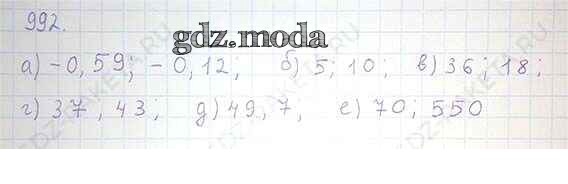 992.
gdz.moda
а) -0,59; -0,12; б) 5; 10; в) 36; 18;
г) 37; 43; д) 49, 7; е) 70; 550